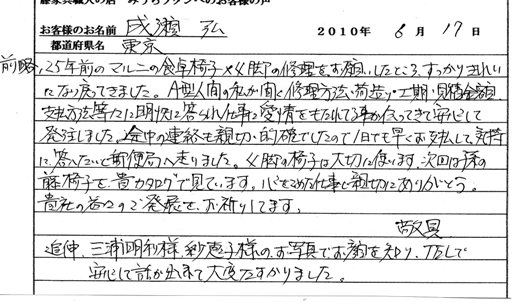 藤家具職人の店 みうらラタンへのお客様の声
お客様のお名前 成瀬 弘 2010年 6月 17日
都道府県名 東京
前略、25年前のマルニの食卓椅子×4脚の修理をお願いしたところ、すっかりきれい
になって戻ってきました。A型人間の私が聞く修理方法、荷造り・工期・見積金額、
支払方法等々に明快に答られ仕事に愛情をもたれてる事が伝ってきて安心して
発注しました。途中の連絡も親切・的確でしたので1日でも早くお支払して気持
に答へたいと郵便局へ走りました。4脚の椅子は大切に使います。次回は孫の
藤椅子を貴カタログで見ています。心をこめた仕事と親切にありがとう。
貴社の益々のご発展をお祈りしてます。
敬具
追伸、三浦明利様、紗恵子様のお写真でお顔を知り、TELで
安心して話が出来て大変たすかりました。